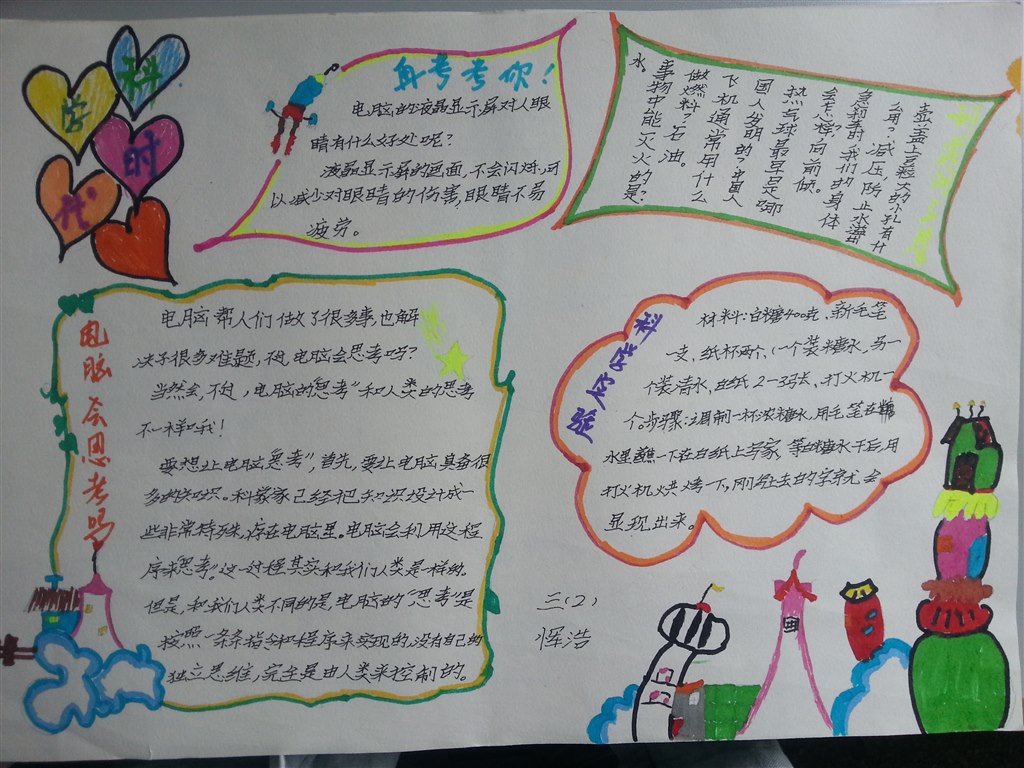 科学时代
身考考你！
电脑的液晶显示屏对人眼
睛有什么好处呢？
液晶显示屏的画面，不会闪烁，可
以减少对眼睛的伤害，眼睛不易
疲劳。
壶盖上豆粒大的小孔有什
么用？减压，防止水溢出
急刹车时我们的身体
会怎样？向前倾。
热气球最早是哪
国人发明的？中国人
飞机通常用什么
做燃料？石油。
事物中能灭火的是？
水。
电脑会思考吗
电脑帮人们做了很多事，也解
决了很多难题，不过，电脑会思考吗？
当然会，不过，电脑的“思考”和人类的思考
不一样哦！
要想让电脑“思考”，首先，要让电脑具备很
多的知识。科学家已经把知识设计成一
些非常特殊，存在电脑里。电脑会利用这程
序来“思考”。这一过程其实和我们人类是一样的。
但是，和我们人类不同的是，电脑的“思考”是
按照一条条指令和程序来实现的，没有自己的
独立思维，完全是由人类来控制的。
科学实验
材料：白糖400克、新毛笔
一支，纸杯两个，（一个装糖水，另一
个装清水，白纸2-3张，打火机一
个。步骤：调制一杯浓糖水，用毛笔在糖
水里蘸一下在白纸上写字，等白糖水干后，用
打火机烘烤一下，刚给上去的字就会
显现出来。
三（2）
恽浩